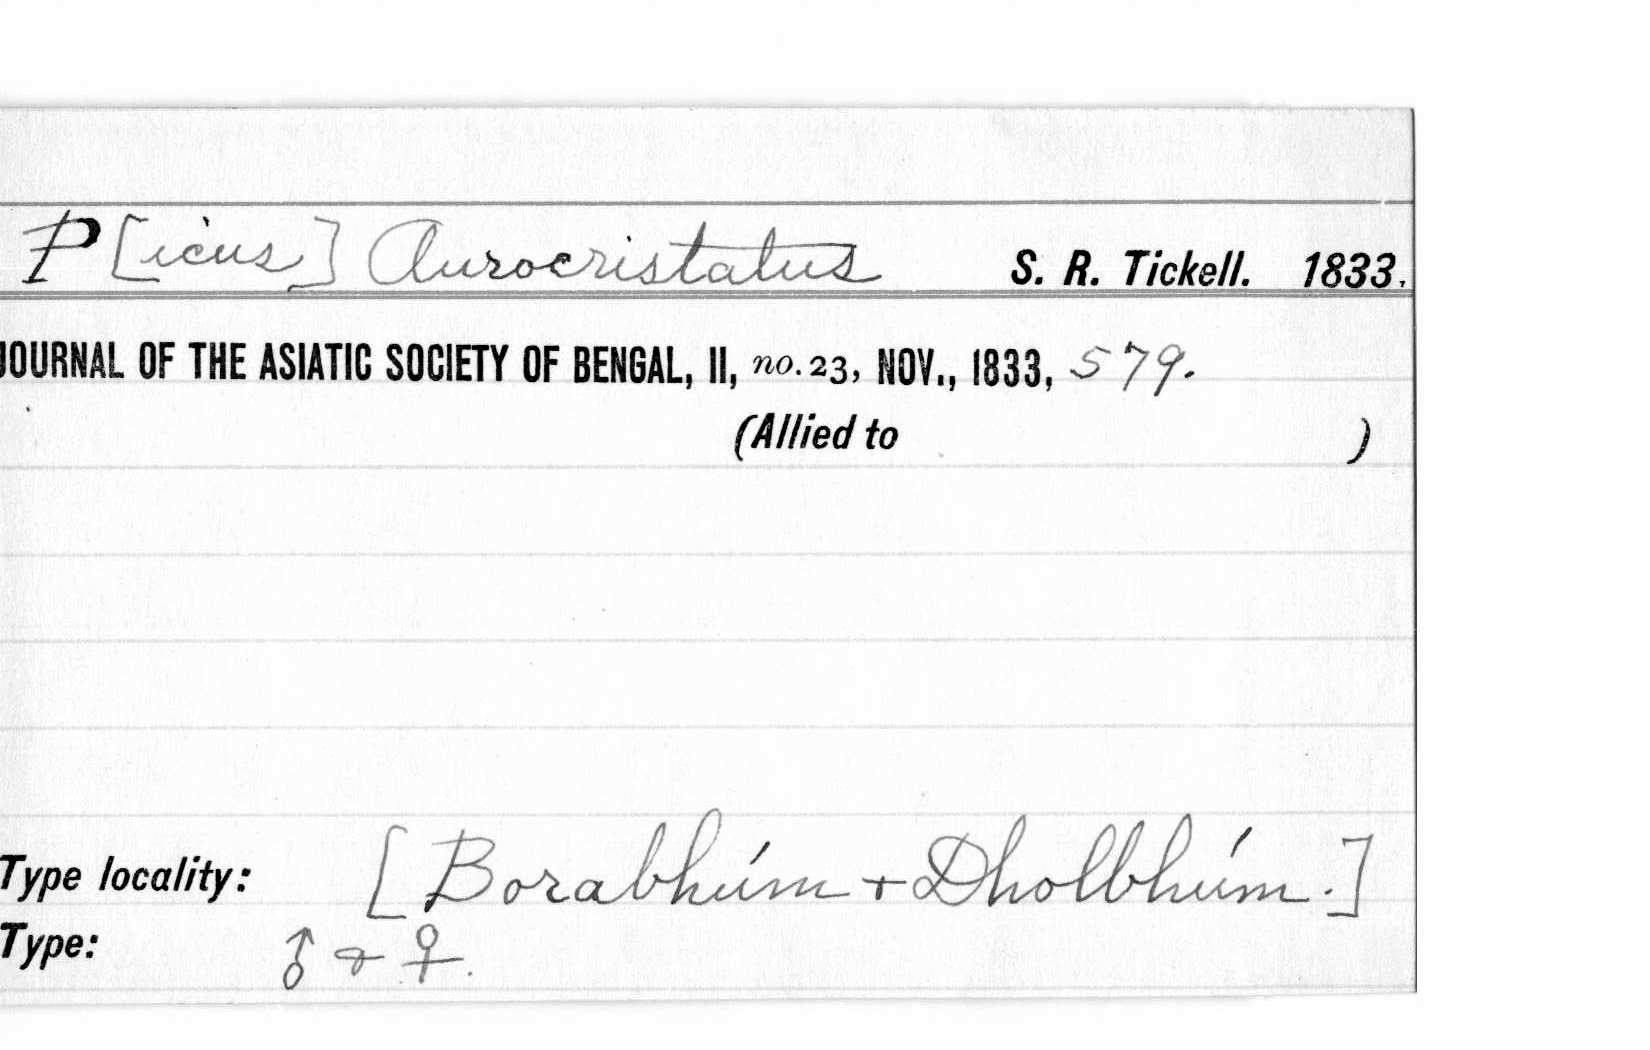 P[icus] Aurocristatus S. R. Tickell. 1833.
JOURNAL OF THE ASIATIC SOCIETY OF BENGAL, II, no. 23, NOV., 1833, 579.
(Allied to )
Type locality: [Borabhúm + Dholbhúm.]
Type: ♂ & ♀.